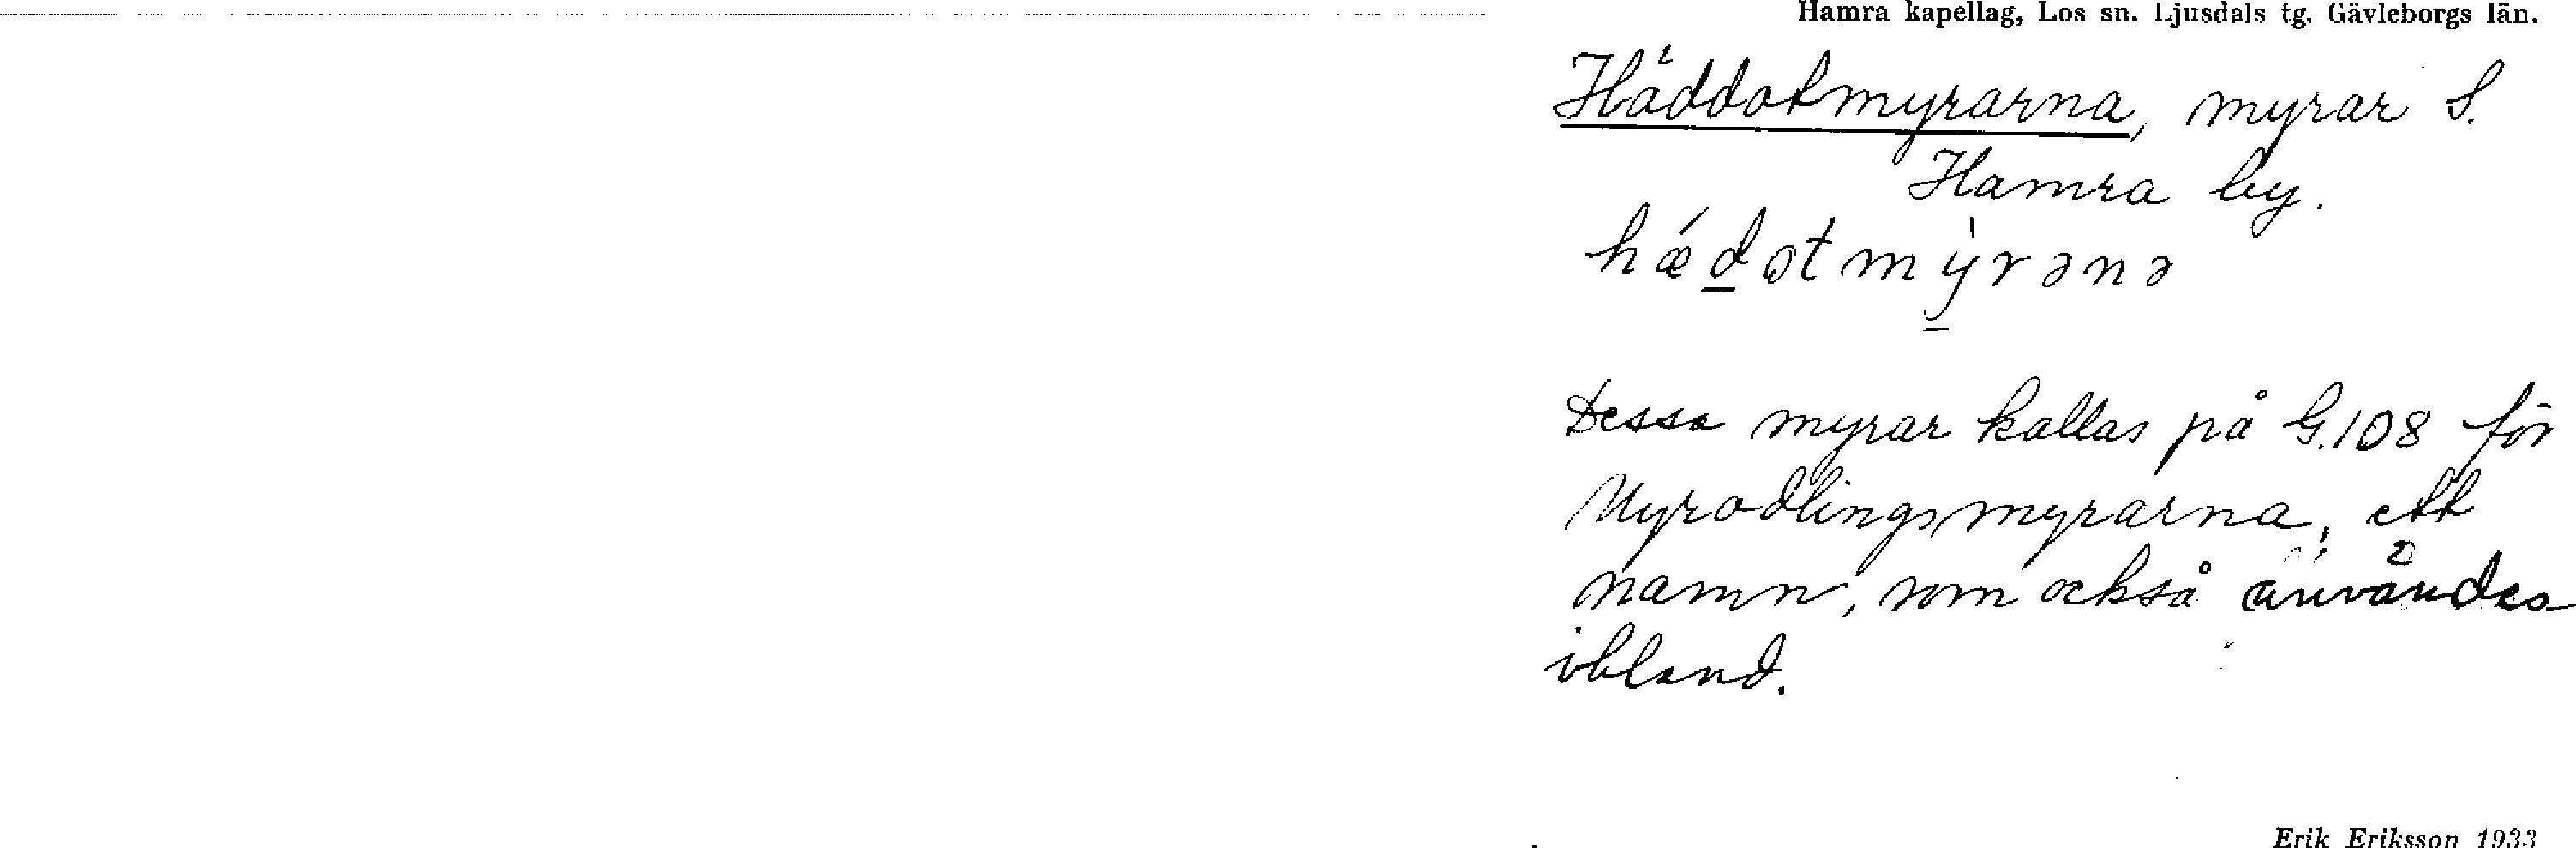 Hamra kapellag, Los sn. Ljusdals tg. Gävleborgs län.
Häddotmyrarna, myrar S.
Hamra by.
hǽd̲otmỳrənə
Dessa myrar kallas på G.108 för
Myrodlingsmyrarna, ett
namn, som också användes
ibland.
Erik Eriksson 1933